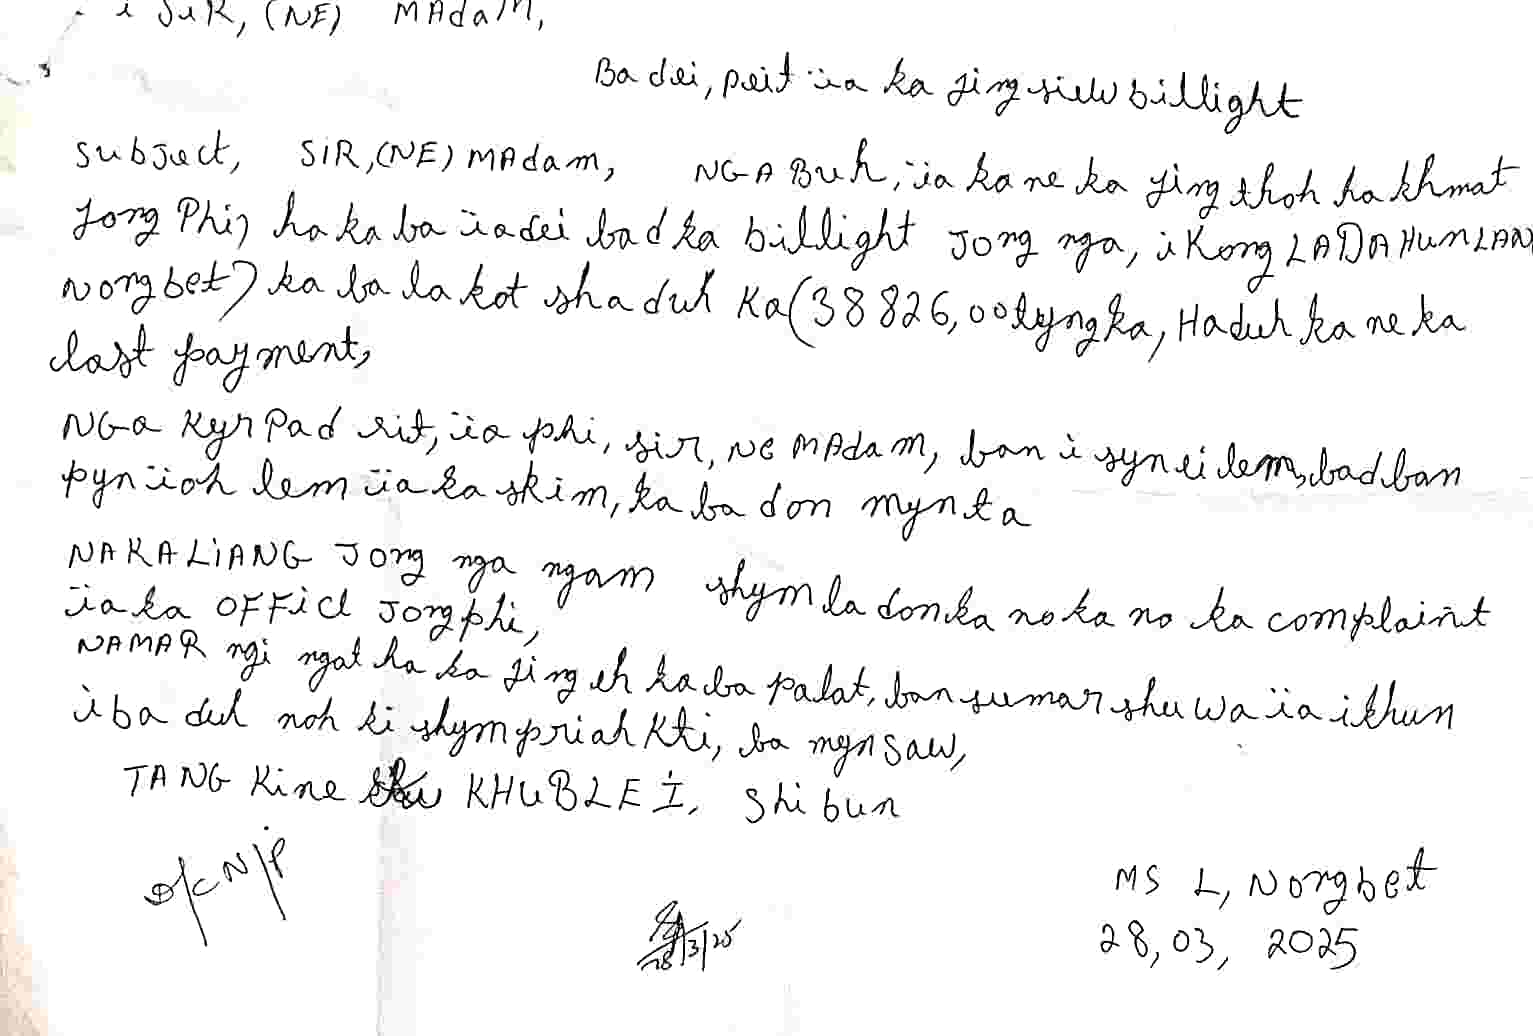 i SiR, (NE) MAdam,
Ba dei, peit ïa ka jingsiew billight
subject, SIR,(NE) MAdam, NGA Buh, ïa kane ka jingthoh ha khmat
Jong Phi, ha kaba ïadei bad ka billight Jong nga, i Kong LADAHUNLAN
Nongbet) kaba la kot shaduh Ka(38826,00tyngka, Haduh kane ka
last payment,
NGa Kyrpad rit, ïa phi, sir, NE MAdam, ban i synei lem, bad ban
pynïoh lem ïa ka skim, kaba don mynta
NAKALIANG Jong nga ngam shym la don kano kano ka complaint
ïa ka OFFicl Jong phi,
NAMAR ngi ngat ha ka jingeh kaba palat, ban sumar shuwa ïa i khun
iba duh noh ki shympriah Kti, ba mynsaw,
TANG Kine KHUBLEI, Shibun
o/c N/P
28/3/25
MS L, Nongbet
28,03, 2025